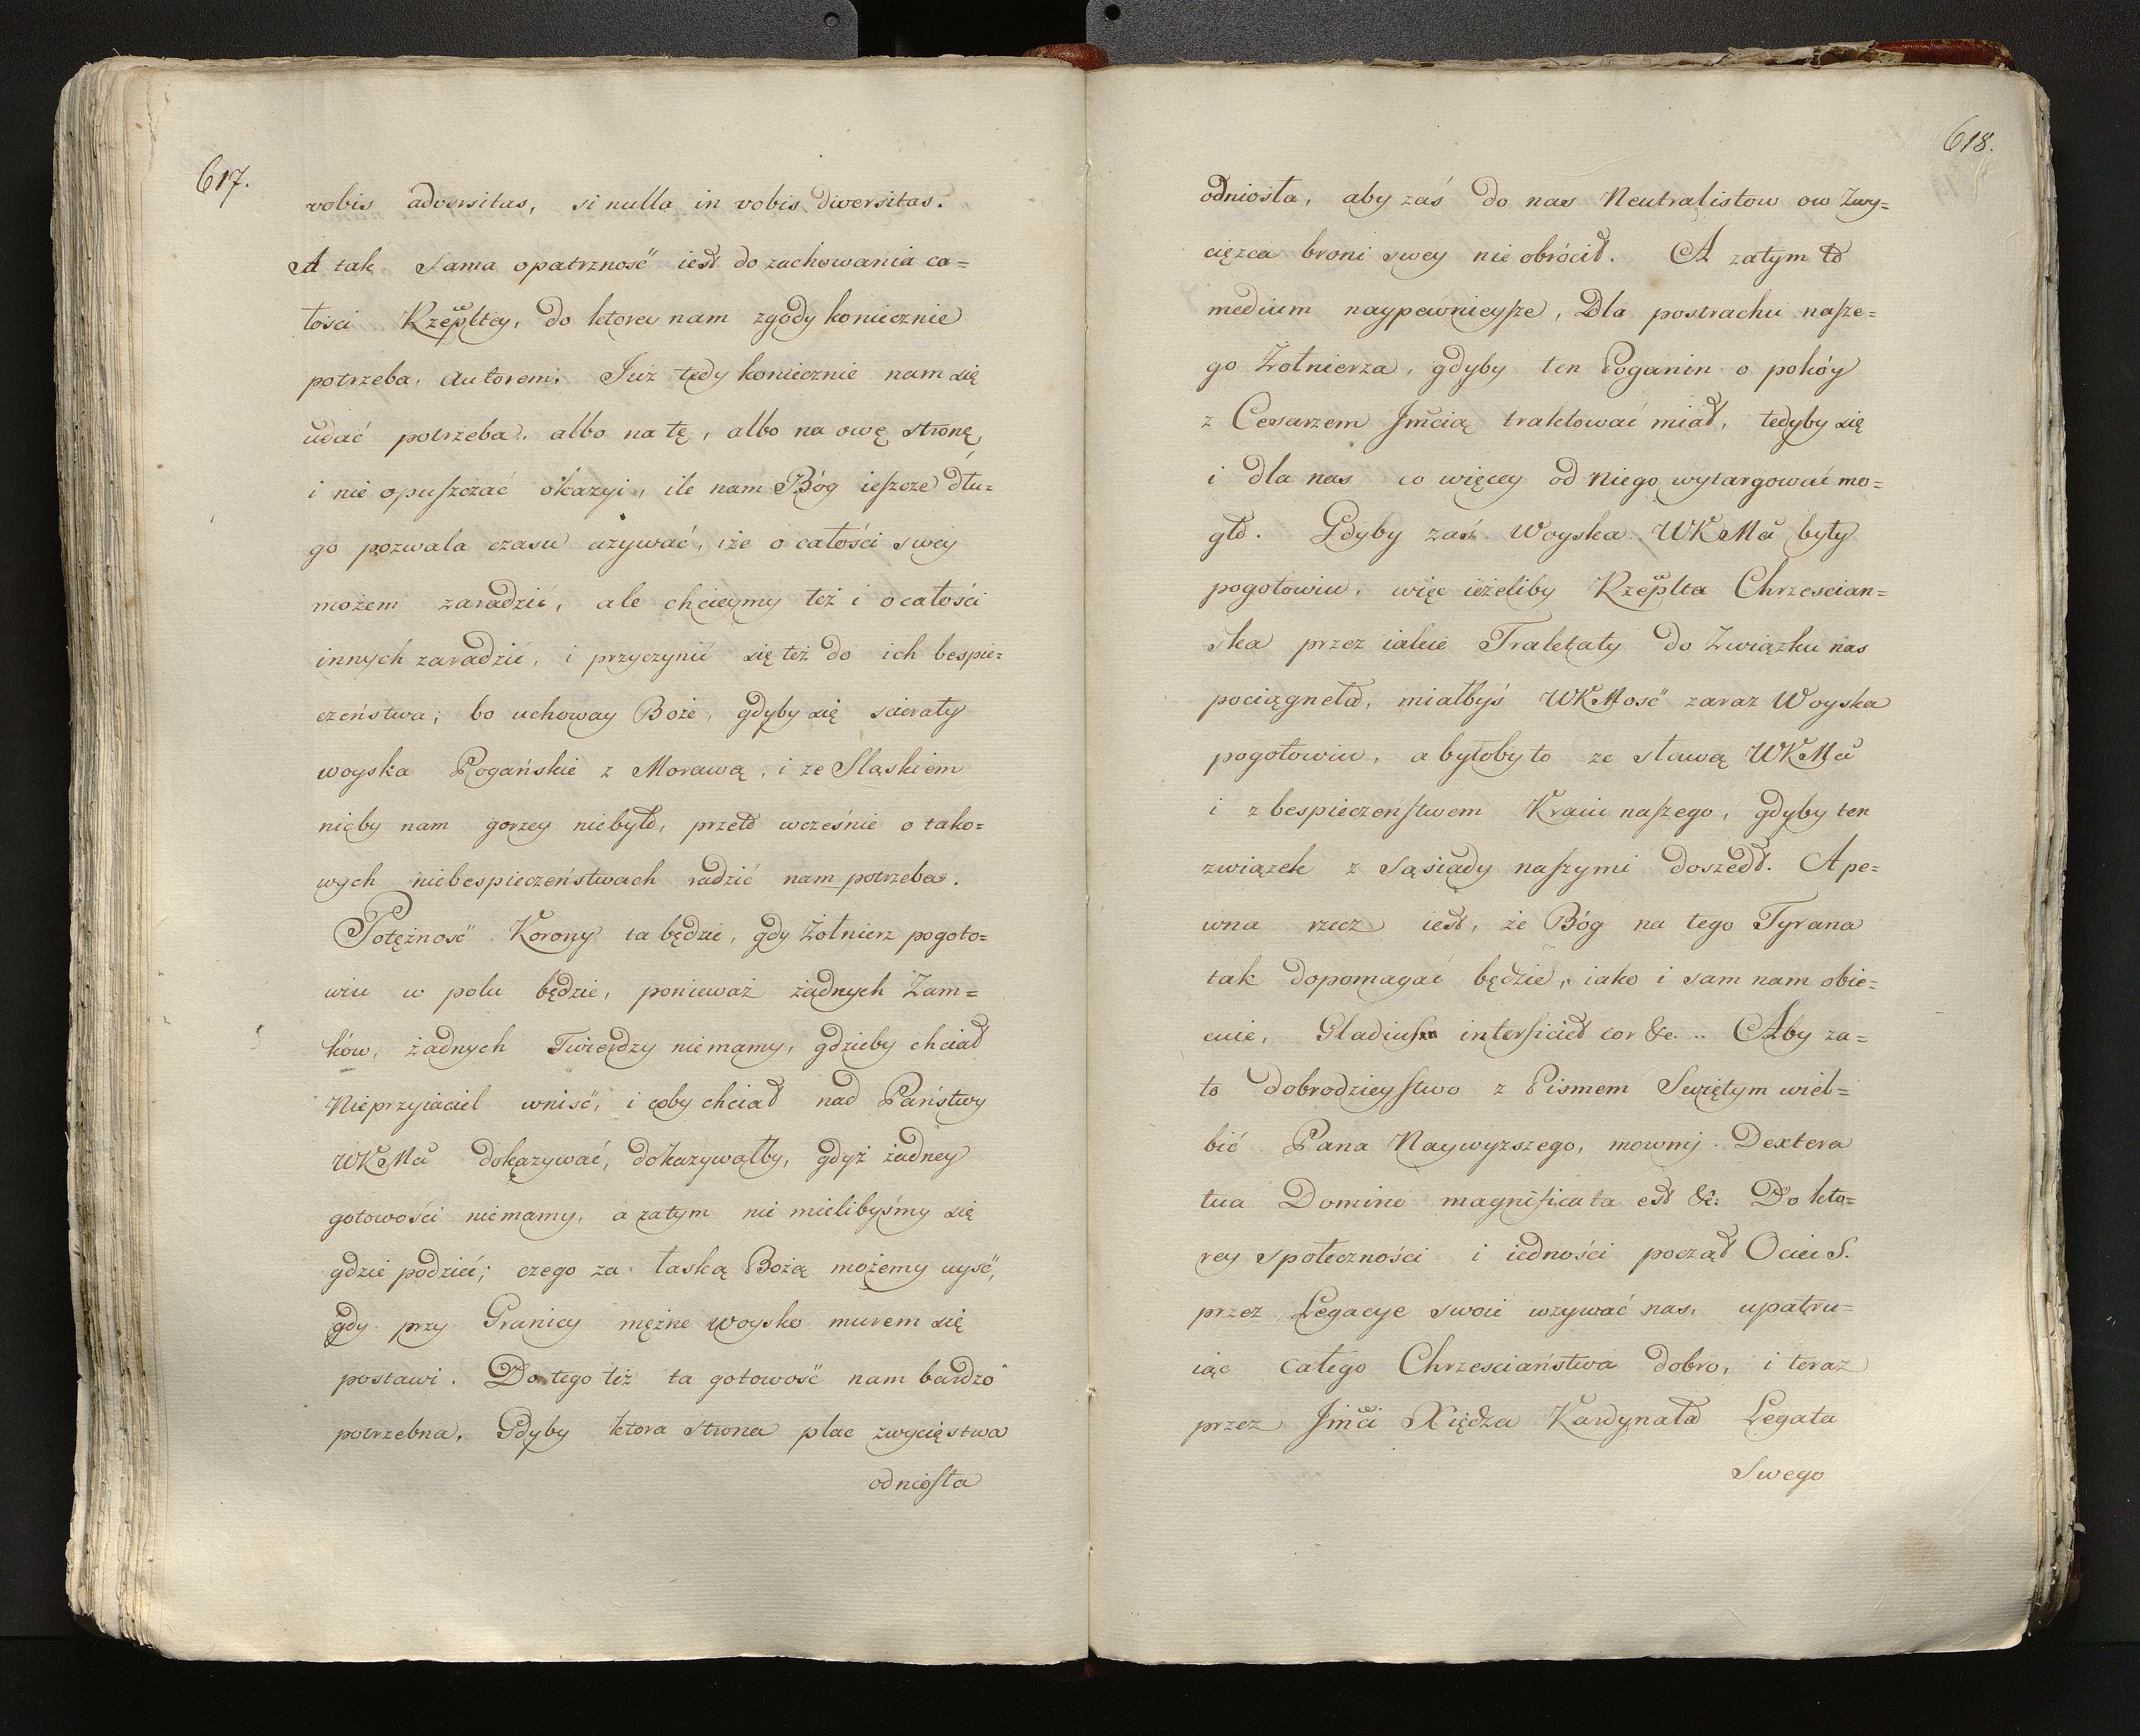 617.
vobis adversitas, si nulla in vobis diversitas.
A tak sama opatrzność iest do zachowania ca=
łości Rzepltey, do ktorey nam zgody koniecznie
potrzeba, autorem. Już tedy koniecznie nam się
udać potrzeba, albo na tę, albo na owę stronę,
i nie opuszczać okazyi, ile nam Bóg ieszcze dłu=
go pozwala czasu używać, iże o całości swey
możem zaradzić, ale chcieymy też i o całości
innych zaradzić, i przyczynić się też do ich bespie=
czeństwa; bo uchoway Boże, gdyby się scierały
woyska Pogańskie z Morawą, i ze Sląskiem
nicby nam gorzey niebyło, przeto wcześnie o tako=
wych niebespieczeństwach radzić nam potrzeba.
Potężność Korony ta będzie, gdy Żołnierz pogoto=
wiu w polu będzie, ponieważ żadnych Zam=
ków, żadnych Twierdzy niemamy, gdzieby chciał
Nieprzyiaciel wniść, i coby chciał nad Państwy
WKMci dokazywać, dokazywałby, gdyż żadney
gotowości niemamy, a zatym nie mielibyśmy się
gdzie podzieć; czego za łaską Bożą możemy uyść,
gdy przy Granicy mężne woysko murem się
postawi. Do tego też ta gotowość nam bardzo
potrzebna. Gdyby ktora strona plac zwycięstwa
odniosła
618.
odniosła, aby zaś do nas Neutralistow ow Zwy=
cięzca broni swey nie obrócił. A zatym to
medium naypewnieysze, Dla postrachu nasze=
go Żołnierza, gdyby ten Poganin o pokóy
z Cesarzem Jmcią traktować miał, tedyby się
i dla nas co więcey od niego wytargować mo=
gło. Gdyby zaś Woyska WKMci były
pogotowiu, więc ieżeliby Rzeplta Chrzescian=
ska przez iakie Traktaty do Związku nas
pociągneła, miałbyś WKMość zaraz Woyska
pogotowiu, a byłoby to ze sławą WKMci
i z bespieczeństwem Kraiu naszego, gdyby ten
związek z Sąsiady naszymi doszedł. A pe=
wna rzecz iest, że Bóg na tego Tyrana
tak dopomagać będzie, iako i sam nam obie=
cuie, Gladius interficiet cor &c. .. Aby za=
to dobrodzieystwo z Pismem Swiętym wiel=
bić Pana Naywyzszego, mowmy. Dextera
tua Domine magnificata est &c: Do kto=
rey społeczności i iedności począł Ociec S.
przez Legacye swoie wzywać nas, upatru=
iąc całego Chrzesciaństwa dobro, i teraz
przez Jmci Xiędza Kardynała Legata
Swego